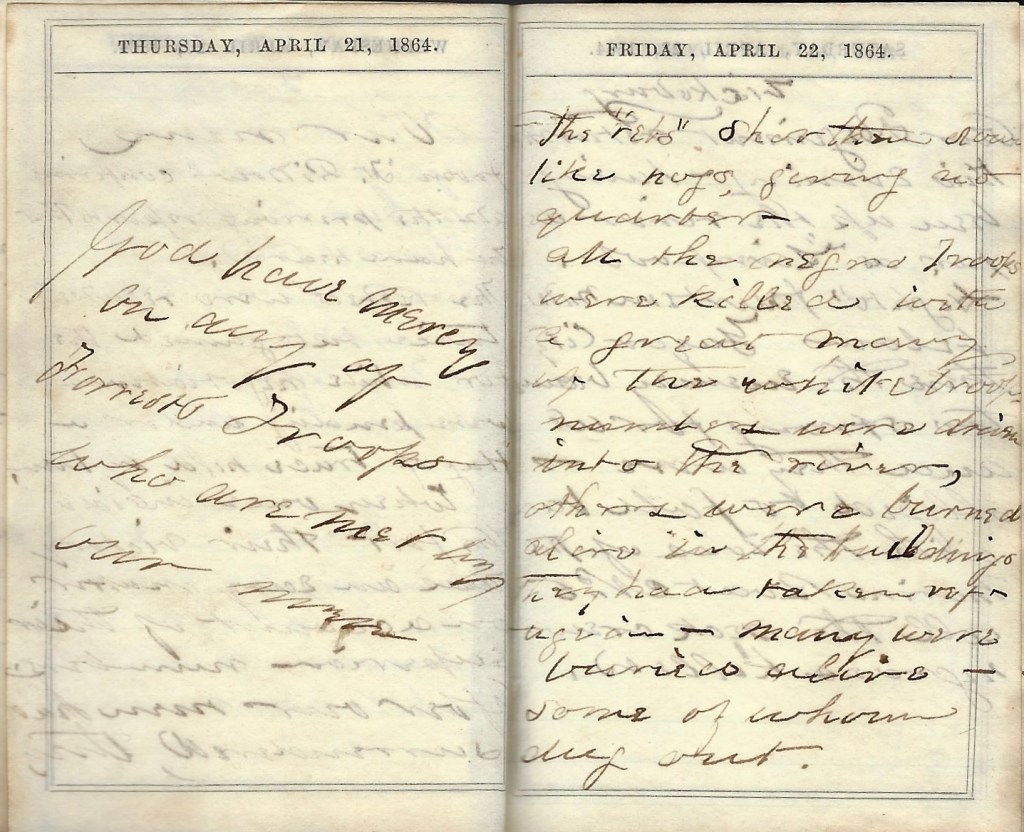 THURSDAY, APRIL 21, 1864.
God have mercy
on any of
Forrests Troops
who are met by
our men
FRIDAY, APRIL 22, 1864.
The "rebs" shot them down
like hogs, giving no
quarter
all the negro Troops
were killed with
a great many
of the white troops
numbers were driven
into the river,
others were burned
alive in the buildings
they had taken ref-
uge in - many were
buried alive -
some of whom
dug out.